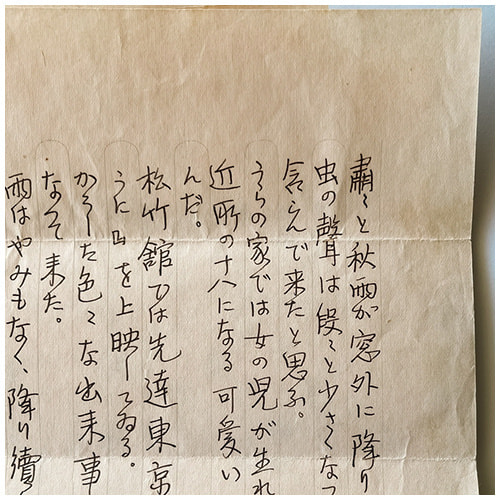 肅々と秋雨が窓外に降り
虫の聲は段々と少さくなつ
含んで来たと思ふ。
うらの家では女の児が生れ
近所の十八になる可愛い
んだ。
松竹館では先達東京
うに』を上映してゐる。
かうした色々な出来事
なつて来た。
雨はやみもなく、降り續